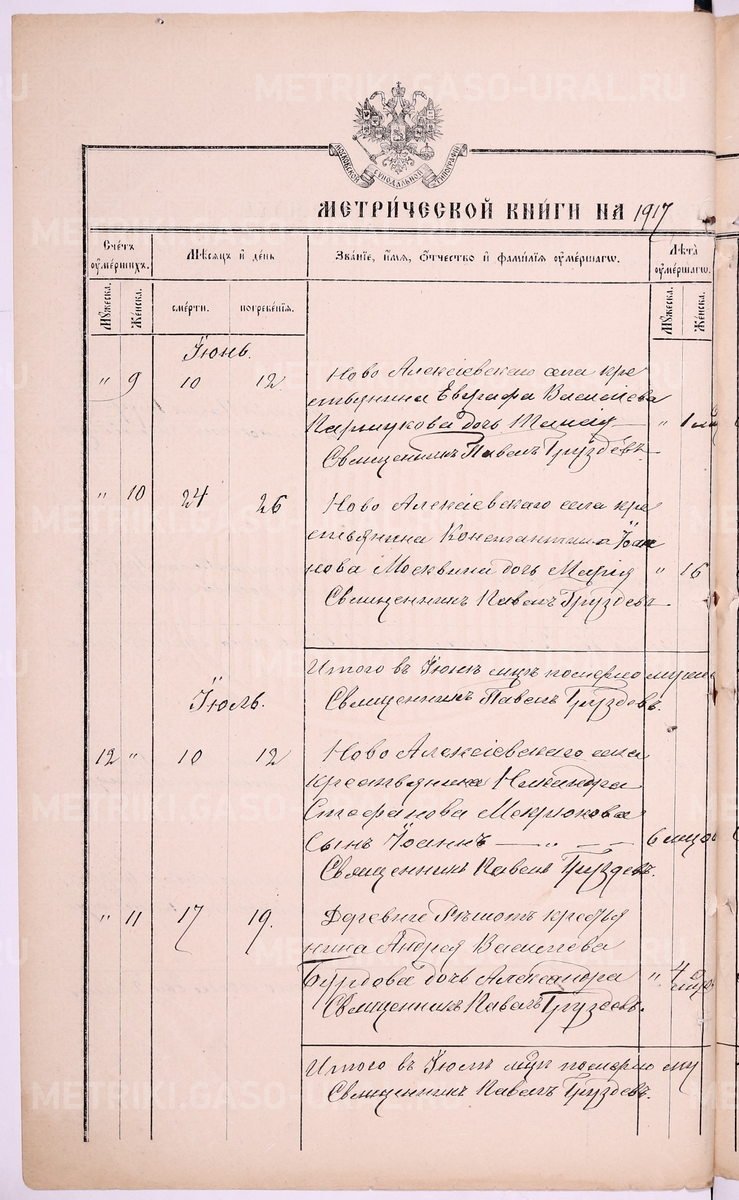 МОСКОВСКОЙ СѴНОДАЛЬНОЙ ТИПОГРАФІИ
МЕТРИ́ЧЕСКОЙ КНИ́ГИ НА 1917
Сче́тъ ᲂу҆ме́ршихъ. Мѣ́сѧцъ и҆ де́нь Зва́нїе, и҆́мѧ, ѻ҆́тчество и҆ фами́лїѧ ᲂу҆ме́ршагѡ. Лѣ́та ᲂу҆ме́ршагѡ.
Мꙋ́жеска. Же́нска. сме́рти. погребе́нїѧ. Мꙋ́жеска. Же́нска.
Іюнь.
" 9 10 12 Ново Алексіевскаго села кре
стьянина Евграфа Василіева
дочь " 1
Священникъ Павелъ Груздевъ.
" 10 24 26 Ново Алексіевскаго села кре
стьянина Константина Іоан
нова Москвина дочь Марія " 16
Священникъ Павелъ Груздевъ.
Итого въ Іюнѣ мцѣ померло муж
Священникъ Павелъ Груздевъ.
Іюль.
12 " 10 12 Ново Алексіевскаго села
крестьянина Никандра
Стефанова Мокрюкова
сынъ Іоаннъ — " — 6 мцов
Священникъ Павелъ Груздевъ.
" 11 17 19. Деревни Рѣшотъ крестья
нина Андрея Василіева
Бурдова дочь Александра " 4
Священникъ Павелъ Груздевъ.
Итого въ Іюлѣ мцѣ померло му
Священникъ Павелъ Груздевъ.
METRIKI.GASO-URAL.RU